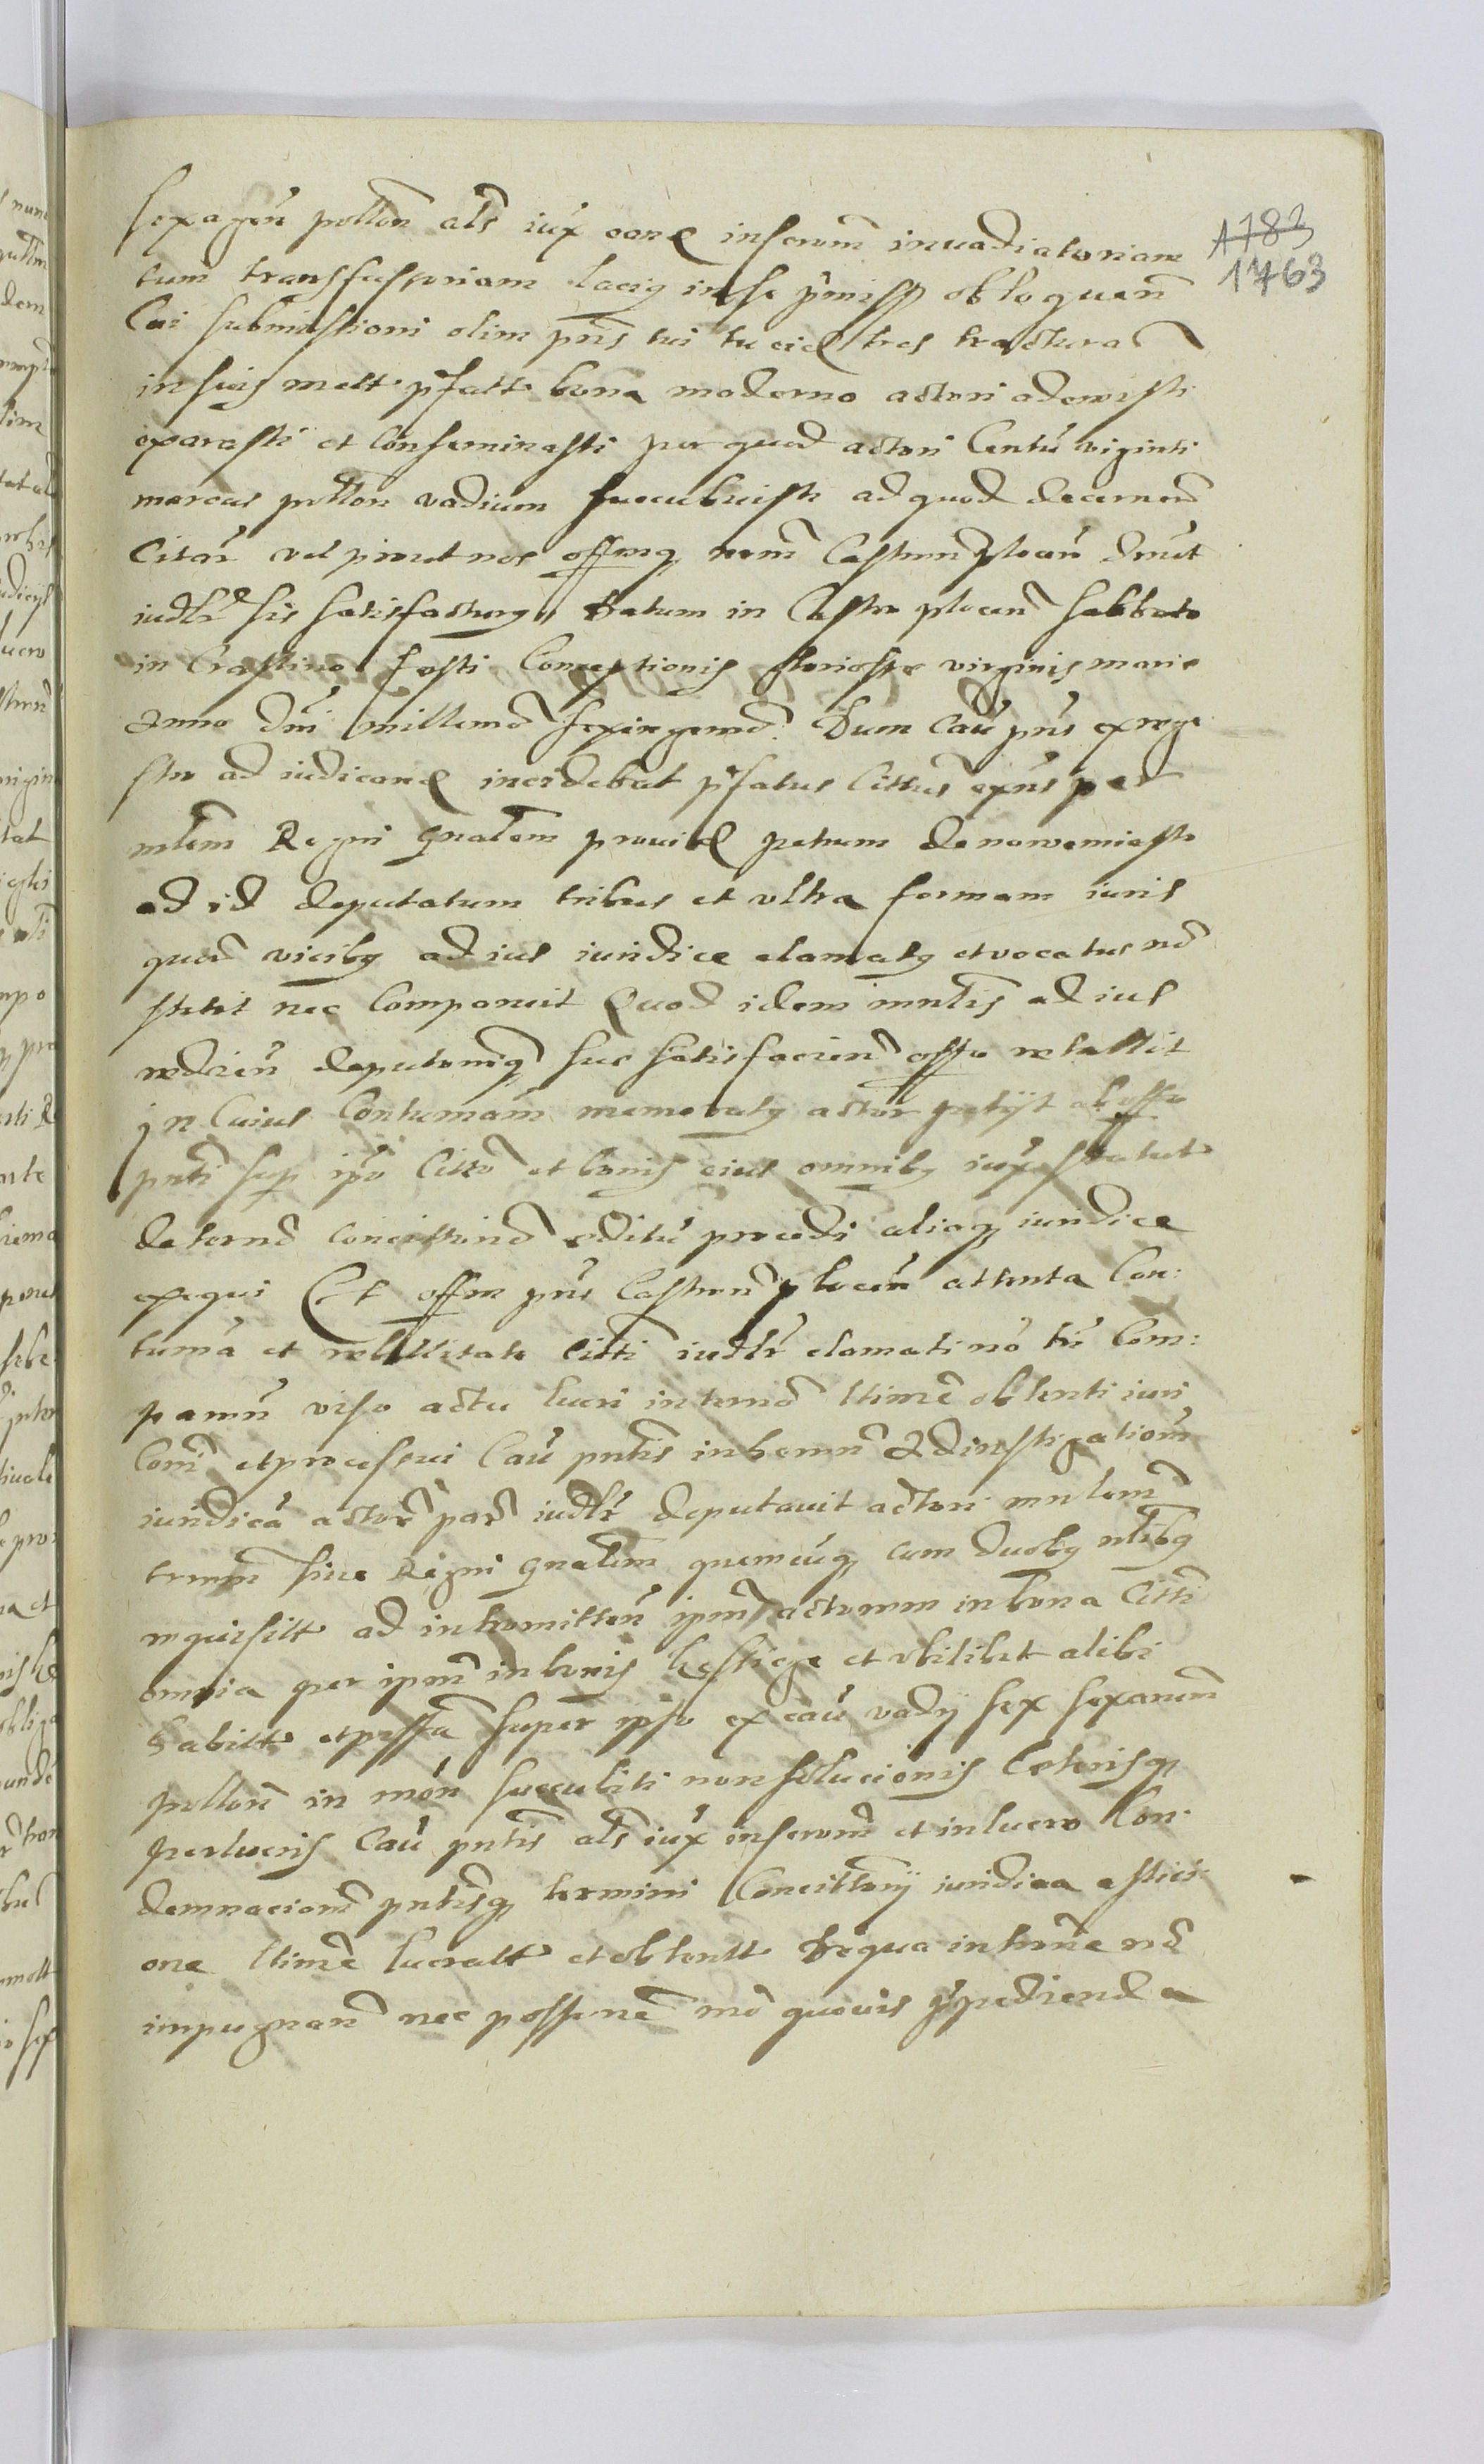 1783
1763
sexagen pollon als iux eand inscrom inuadiatoriam
cum transfusoriam latiq in se pmiss obloquen
Cui submissioni olim pns tui tu eid tres tractura
in suis mett pfatt bona moderno actori ademisti
exarasti et Conseminasti per quod actori Centu viginti
marcas pollon vadium succubuisti ad quod decernend
Citar vel prout nos offmq nrm Castrum plocen duxit
iudlr sis satisfacturq Datum in Castro plocen sabbato
in Crastino festi Conceptionis gloriosse virginis marie
Anno dni millemo sexingemo. Dum Cau pns ex rege
stro ad iudicand incidebat pfatus Cittus exns per
mlem Regni gnalem prouid petrum de nowemiasto
ad id deputatum tribus et vltra formam iuris
quar vicibq ad ius iuridice clamatq et vocatus no
stetit nec Comparuit Quod idem mnlis ad ius
redien deputoniq suo satisfacien offo retullit
In Cuius Contumam memoratq actor petijt ab offo
pnti sup ipo Citto et bonis eius omnibq iux statut
de termo concittorio editu procedi aliaq iuridice
exequi Et offm pns Castren plocen attenta Con:
tuma et rebellitate Citti iudlr clamati no tn Com:
paren viso actu lucri in termo ltime obtenti iuri
Comi et processui Cau pntis inheren Ad instigationem
iuridica actor par iudlr deputauit actori mnlem
trrem siue Regni gnalem quemcuq cum duobq nlibq
requisitt ad intromitten ipm actorem in bona Citti
omnia per ipm in bonis et vbilibet alibi
habitt et possa super ipso ex cau vadij sex sexagenm
pollon in mon succubiti non solucionis Ceterisq
perlucris Cau pntis als iux inscrom et in lucro Con:
demnacionem pntisq termini Concittorij iuridica astici
one ltime lucratt et obtentt De qua in termne no
impugnan nec possunt mo quouis expedienda